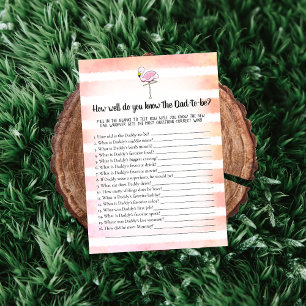 How well do you know the Dad-to-be?
FILL IN THE BLANKS TO TEST HOW WELL YOU KNOW THE NEW
DAD. WHOEVER GETS THE MOST QUESTIONS CORRECT WINS!
1. How old is the Daddy-to-be?
2. What is Daddy's middle name?
3. What is Daddy's birth month?
4. What is Daddy's favorite food?
5. What is Daddy's biggest craving?
6. What is Daddy's favorite drink?
7. What is Daddy's favorite movie?
8. If Daddy were a superhero, he would be?
9. What car does Daddy drive?
10. How many siblings does he have?
11. What is Daddy's favorite hobby?
12. What is Daddy's favorite color?
13. What was Daddy's first job?
14. What is Daddy's favorite sport?
15. Where was Daddy's last vacation?
16. How did he meet Mommy?